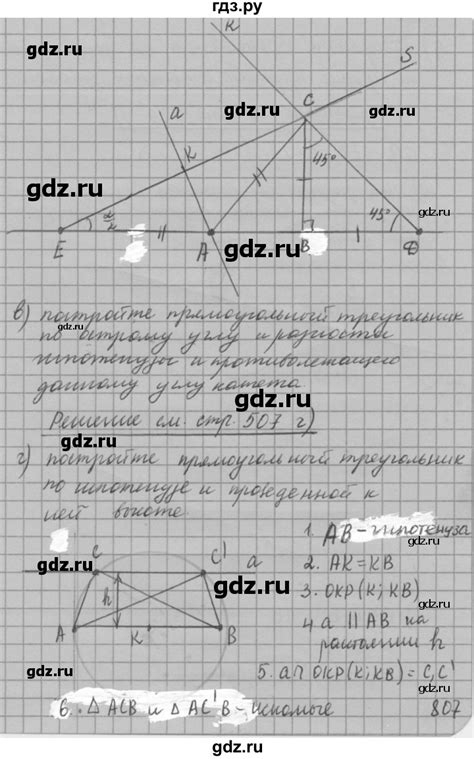 гдз.ру
gdz.ru
K
S
gdz.ru
C
gdz.ru
a
K
45°
gdz.ru
α/2
45°
gdz.ru
E
A
gdz.ru
B
D
в) постройте прямоугольный треугольник
по острому углу и разности
гипотенузы и противолежащего
данному углу катета.
gdz.ru
Решение см. стр. 507 г)
gdz.ru
г) постройте прямоугольный треугольник
по гипотенузе и проведенной к
ней высоте.
gdz.ru
1. AB - гипотенуза
C
C'
a
gdz.ru
2. AK = KB
h
3. окр(K; KB)
A
K
B
4 a || AB на
расстоянии h
gdz.ru
gdz.ru
5. a∩ окр(K; KB) = C, C'
6. △ ACB и △ AC'B - искомые
807
gdz.ru
gdz.ru
gdz.ru